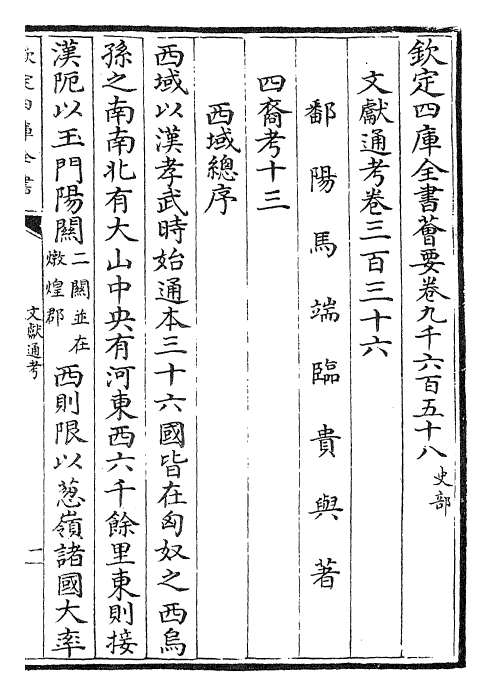 欽定四庫全書薈要卷九千六百五十八 史部
文獻通考卷三百三十六
鄱陽馬端臨貴與著
四裔考十三
西域總序
西域以漢孝武時始通本三十六國皆在匈奴之西烏
孫之南南北有大山中央有河東西六千餘里東則接
漢阨以玉門陽關二關並在燉煌郡西則限以葱嶺諸國大率
欽定四庫全書
文獻通考
一